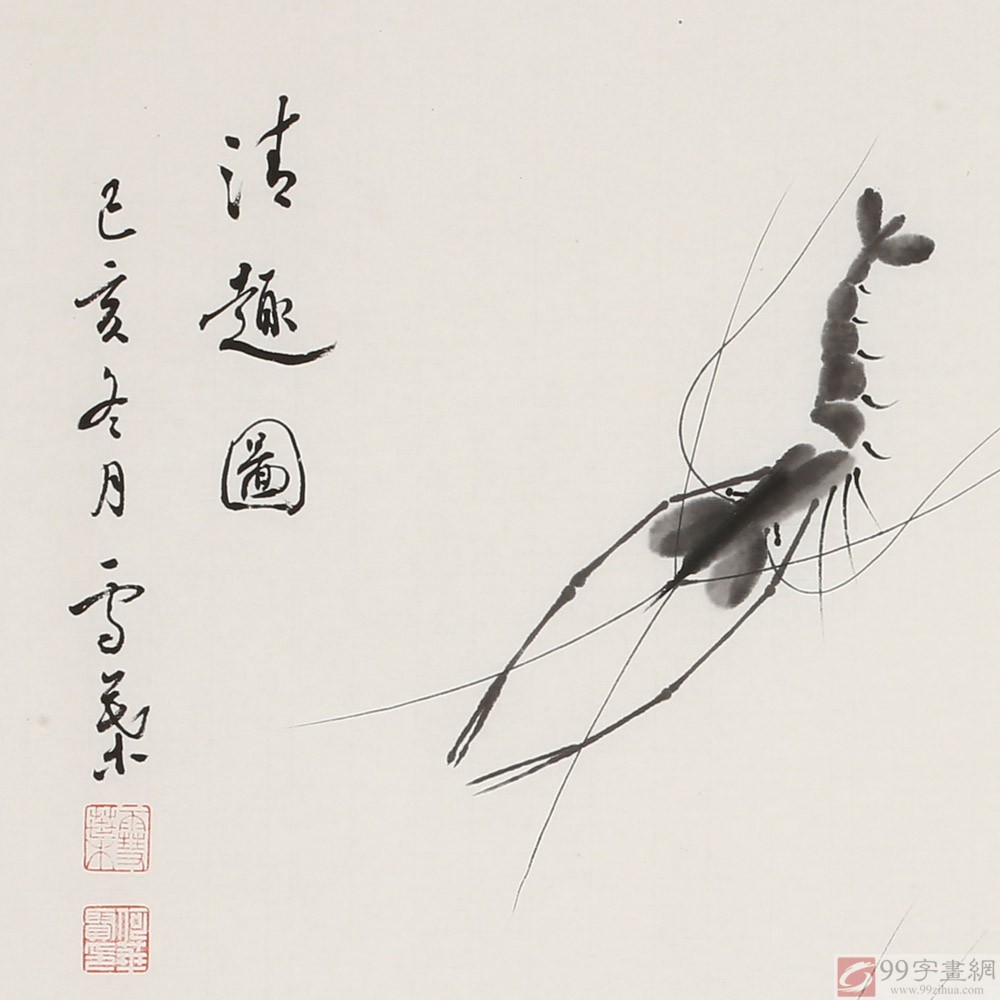 清趣圖
己亥冬月雪葉
雪葉
99字畫網
www.99zihua.com